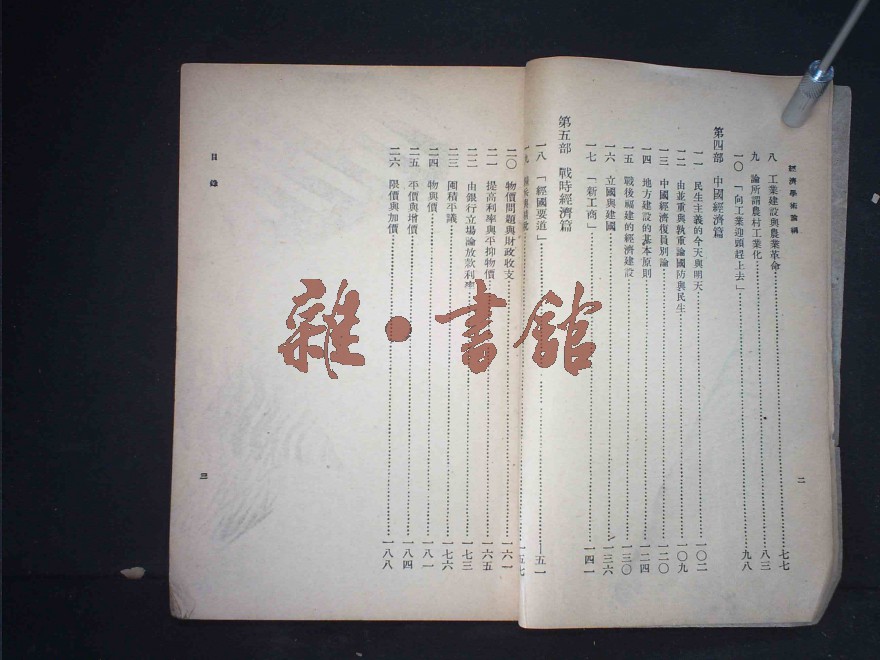 經濟學術論稿
八 工業建設與農業革命 七七
九 論所謂農村工業化 八三
一〇 「向工業迎頭趕上去」 九八
第四部 中國經濟篇
一一 民生主義的今天與明天 一〇二
一二 由並重與孰重論國防與民生 一〇九
一三 中國經濟復員別論 一二〇
一四 地方建設的基本原則 一二四
一五 戰後福建的經濟建設 一三〇
一六 立國與建國 一三六
一七 「新工商」 一四一
二
第五部 戰時經濟篇
一八 「經國要道」 一五一
一九 一五七
二〇 物價問題與財政收支 一六一
二一 提高利率與平抑物價 一六五
二二 由銀行立場論放款利率 一七三
二三 囤積平議 一七六
二四 物與價 一八一
二五 平價與增價 一八四
二六 限價與加價 一八八
目錄
三
雜·書館